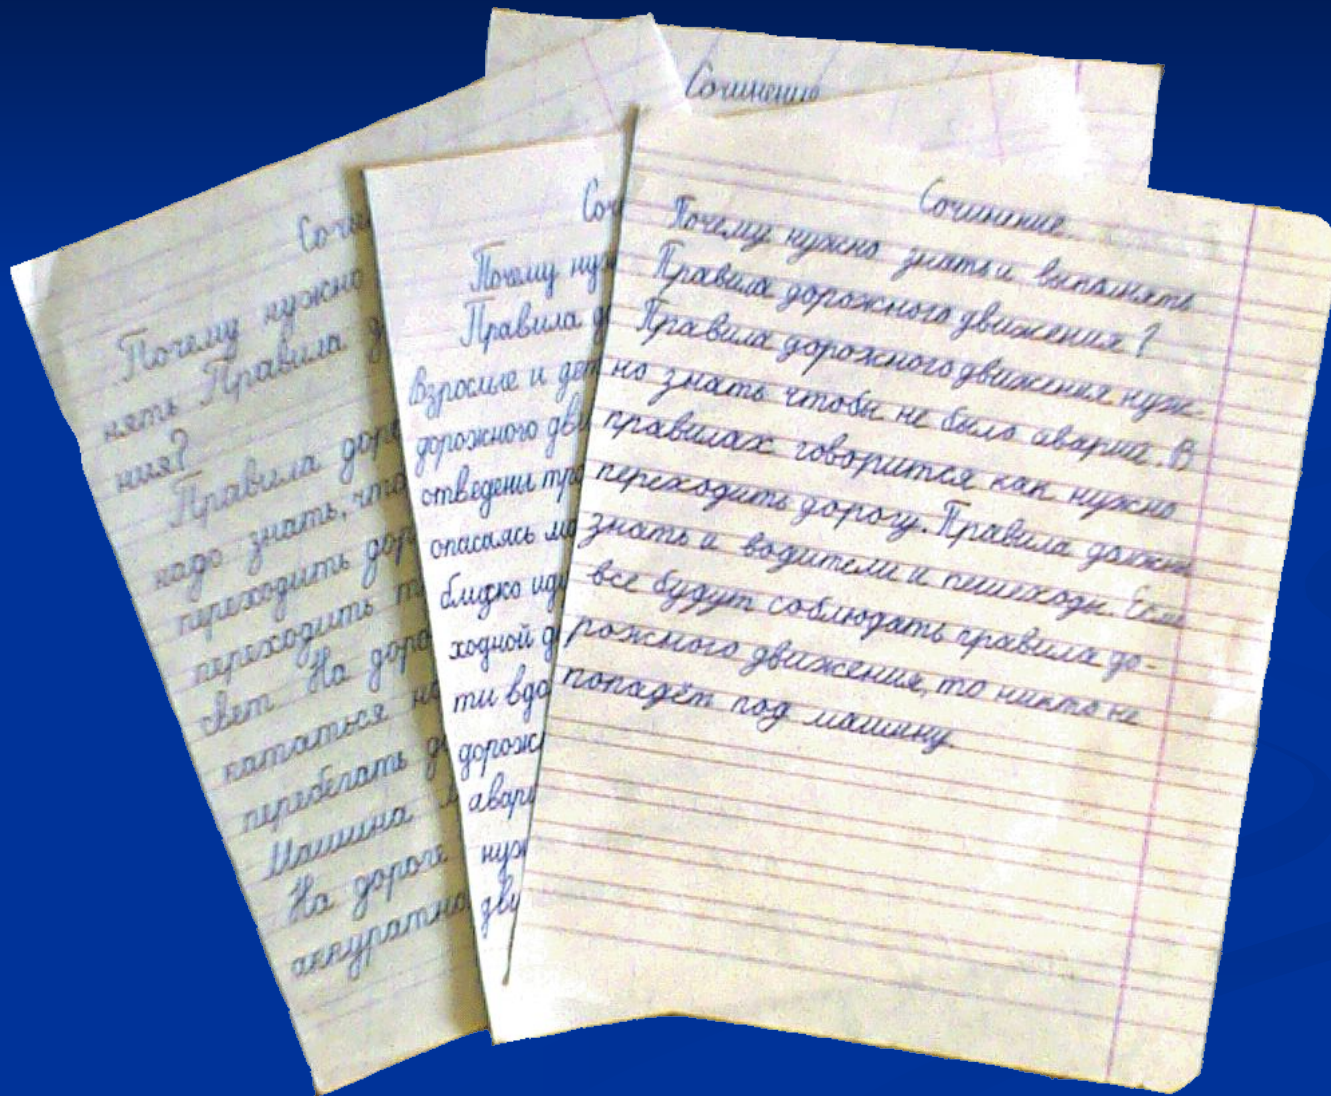 Сочинение
Сочи
Почему нужно
нять Правила д
ния?
Правила доро
надо знать, что
переходить дор
переходить
свет На доро
кататься на
перебегать д
Машина
На дороге
аккуратно
Соч
Почему нуж
Правила до
Взрослые и дет
дорожного дви
отведены тро
опасаясь ма
близко иду
ходной д
ти вдо
дорож
авари
нуж
дви
Сочинение.
Почему нужно знать и выполнять
Правила дорожного движения?
Правила дорожного движения нуж-
но знать чтобы не было аварий. В
правилах говорится как нужно
переходить дорогу. Правила должны
знать и водители и пешеходы. Если
все будут соблюдать правила до-
рожного движения, то никто не
попадёт под машину.